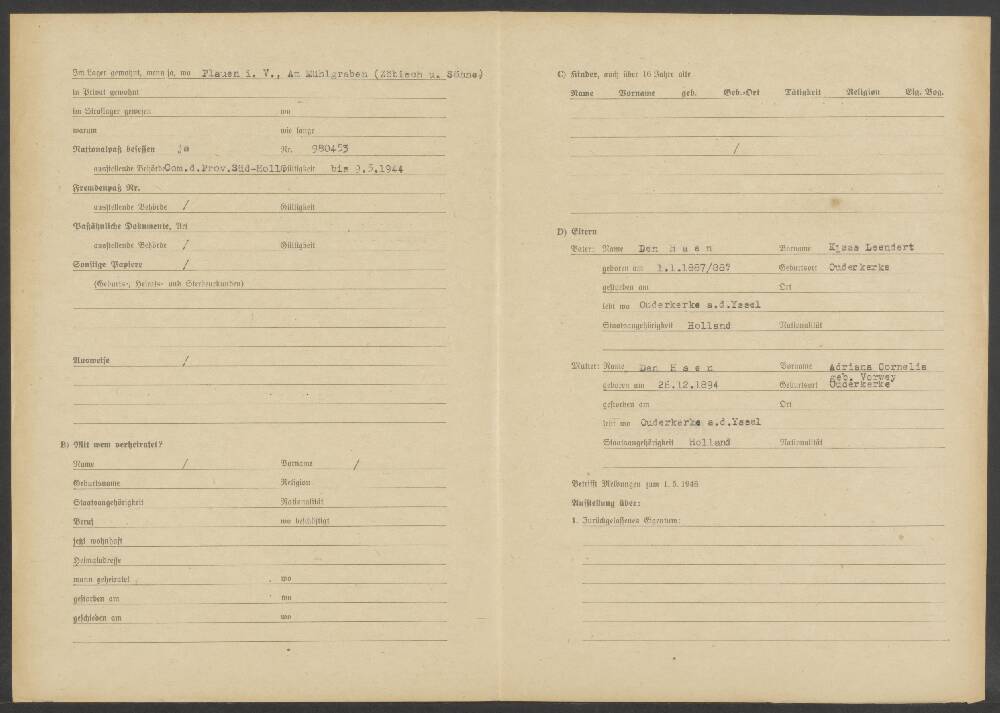 Im Lager gewohnt, wenn ja, wo Plauen i. V., Am Mühlgraben (Zöbisch u. Söhne)
in Privat gewohnt
im Straflager gewesen wo
warum wie lange
Nationalpaß besessen ja Nr. 980453
ausstellende Behörde Com.d.Prov.Süd-Holl. Gültigkeit bis 9.5.1944
Fremdenpaß Nr.
ausstellende Behörde / Gültigkeit
Paßähnliche Dokumente, Art
ausstellende Behörde / Gültigkeit
Sonstige Papiere /
(Geburts-, Heirats- und Sterbeurkunden)
Ausweise /
B) Mit wem verheiratet?
Name / Vorname /
Geburtsname Religion
Staatsangehörigkeit Nationalität
Beruf wo beschäftigt
jetzt wohnhaft
Heimatadresse
wann geheiratet wo
gestorben am wo
geschieden am wo
C) Kinder, auch über 16 Jahre alte
Name Vorname geb. Geb.-Ort Tätigkeit Religion Elg. Bog.
/
D) Eltern
Vater: Name Den Haen Vorname Klaas Leendert
geboren am 1.1.1887/887 Geburtsort Ouderkerke
gestorben am Ort
lebt wo Ouderkerke a.d.Yssel
Staatsangehörigkeit Holland Nationalität
Mutter: Name Den Haen Vorname Adriana Cornelia
geb. Verwey
geboren am 26.12.1894 Geburtsort Ouderkerke
gestorben am Ort
lebt wo Ouderkerke a.d.Yssel
Staatsangehörigkeit Holland Nationalität
Betrifft Meldungen zum 1. 5. 1946
Aufstellung über:
1. Zurückgelassenes Eigentum: